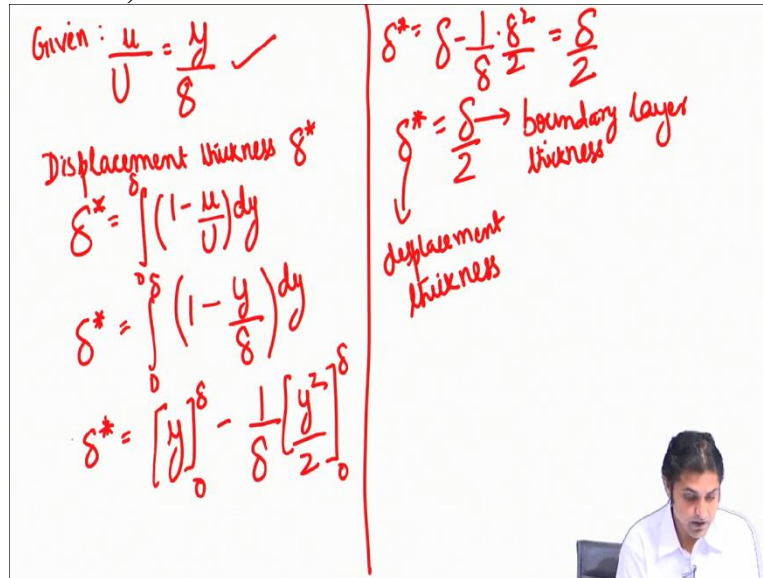 Given : u/U = y/δ ✓
Displacement thickness δ*
δ* = ∫₀^δ (1 - u/U) dy
δ* = ∫₀^δ (1 - y/δ) dy
δ* = [y]₀^δ - 1/δ [y²/2]₀^δ
δ* = δ - 1/δ · δ²/2 = δ/2
δ* = δ/2 → boundary layer
thickness
↓
displacement
thickness